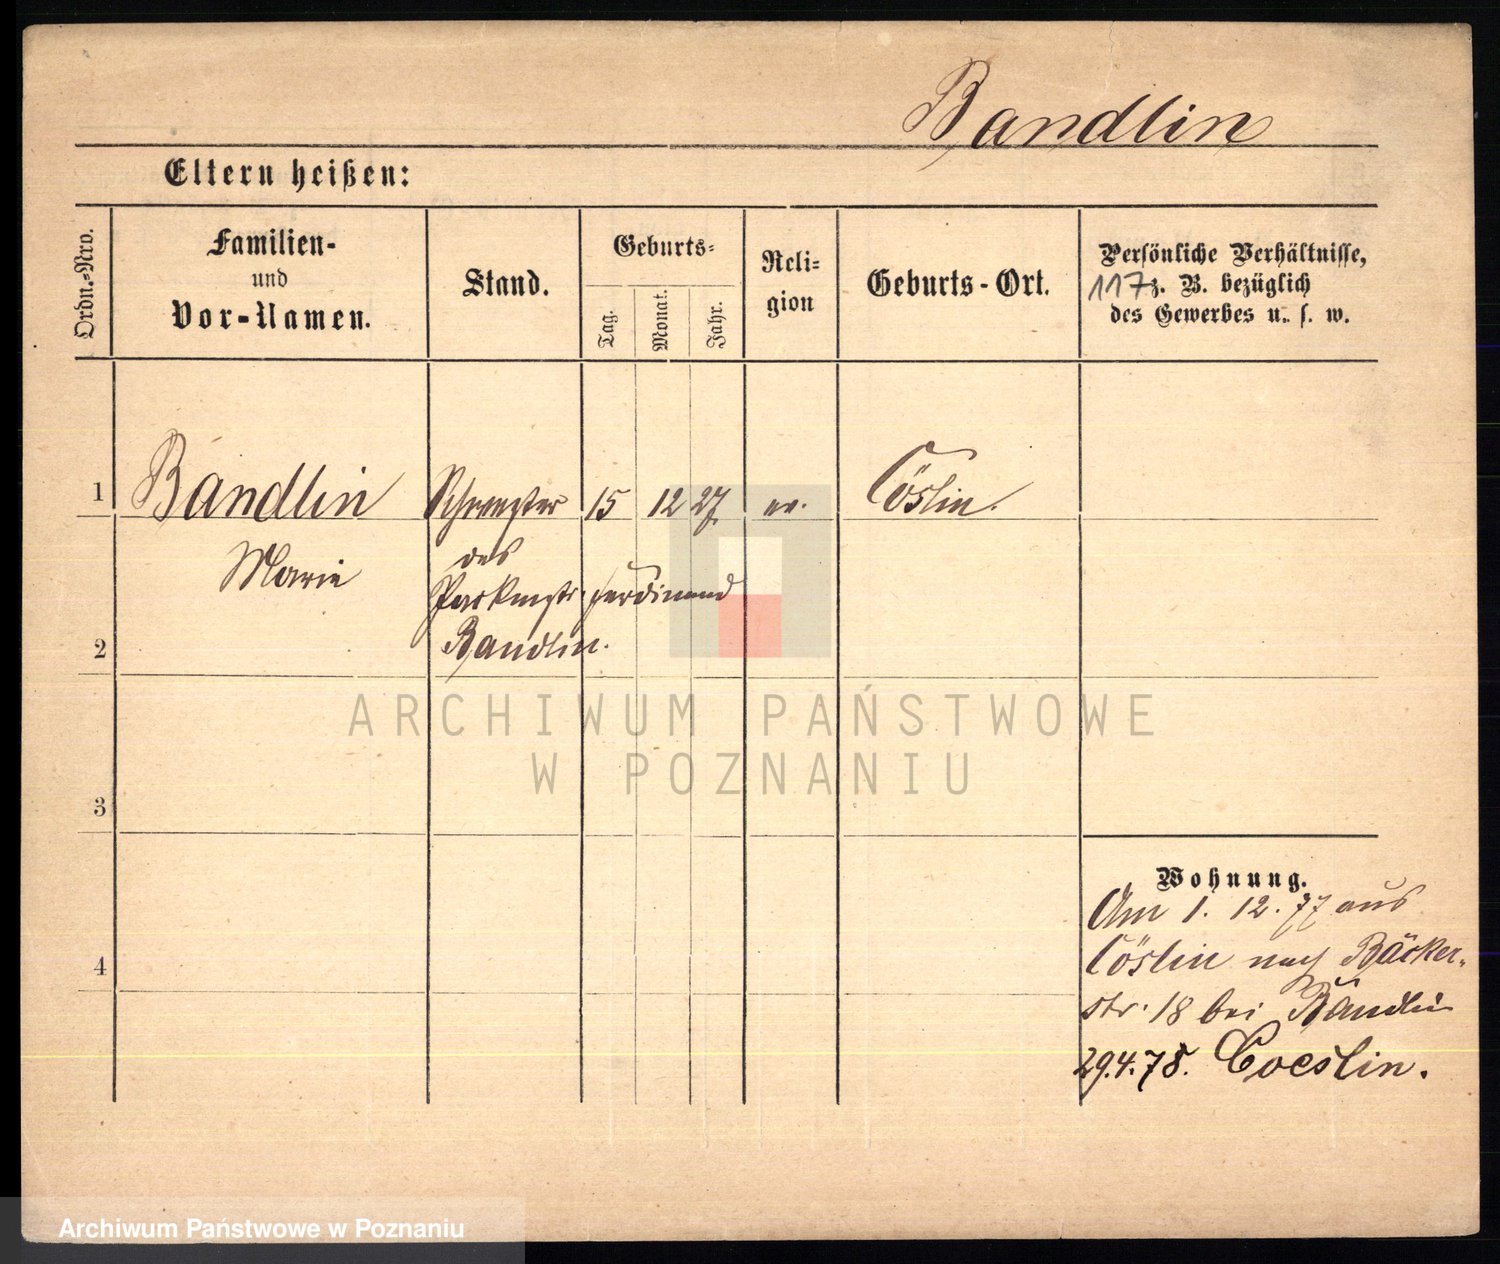 Bandlin
Eltern heißen:
Ordn.-Nro.
Familien-
und
Vor-Namen.
Stand.
Geburts-
Tag.
Monat.
Jahr.
Reli-
gion
Geburts-Ort.
Persönliche Verhältnisse,
117 z. B. bezüglich
des Gewerbes u. s. w.
1 Bandlin Schwester 15 12 27 ev. Cöslin.
Marie des
Packmstr. Ferdinand
2 Bandlin.
ARCHIWUM PAŃSTWOWE
W POZNANIU
3
Wohnung.
Am 1. 12. 77 aus
4 Cöslin nach Bäcker-
str. 18 bei Bandlin
29.4.78. Coeslin.
Archiwum Państwowe w Poznaniu